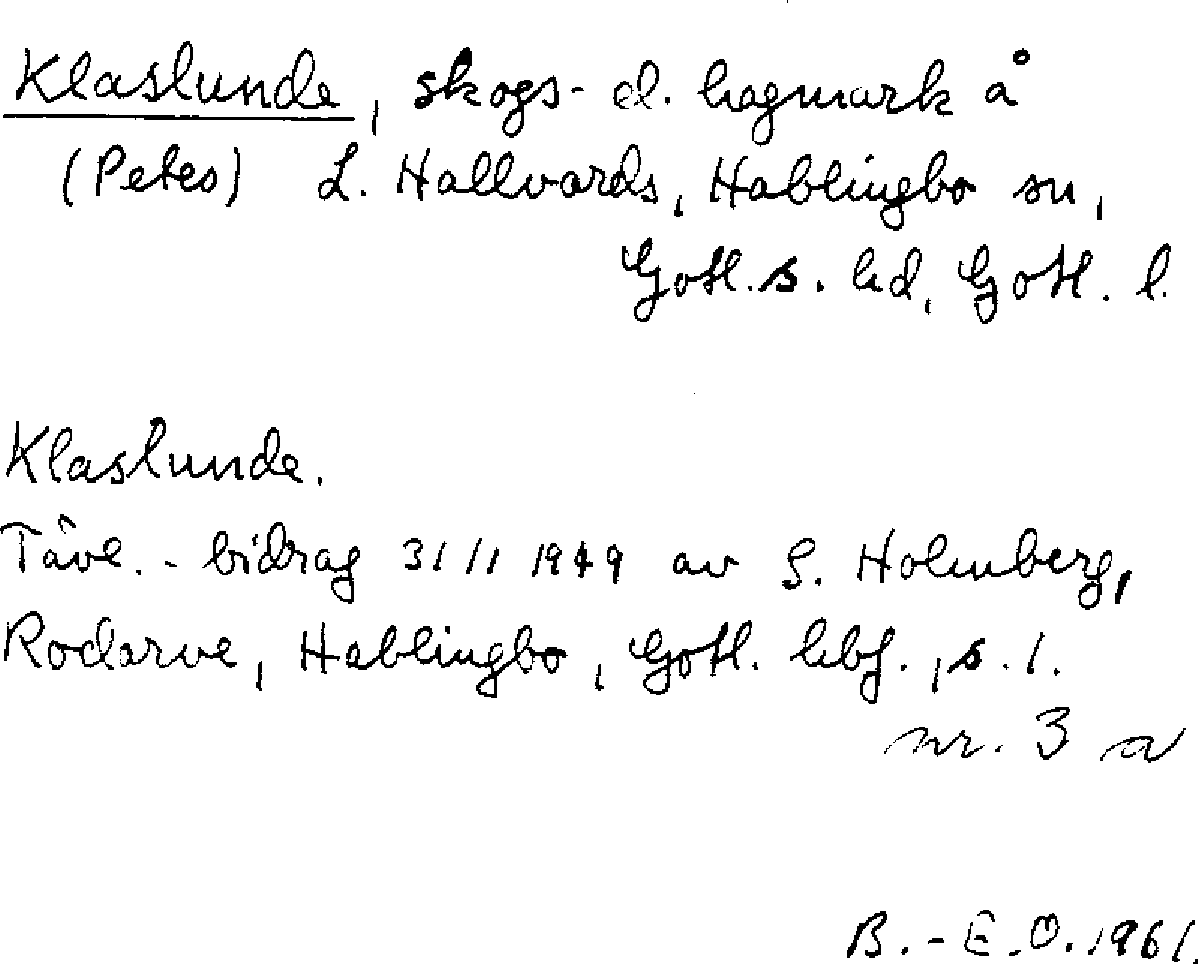 Klaslunde, skogs- el. hagmark å
(Petes) L. Hallvards, Hablingbo sn,
Gotl. s. hd, Gotl. l.
Klaslunde.
Tävl.-bidrag 31/1 1949 av S. Holmberg,
Rodarve, Hablingbo, Gotl. hbf., s. 1.
nr. 3 a
B.-E.O. 1961.